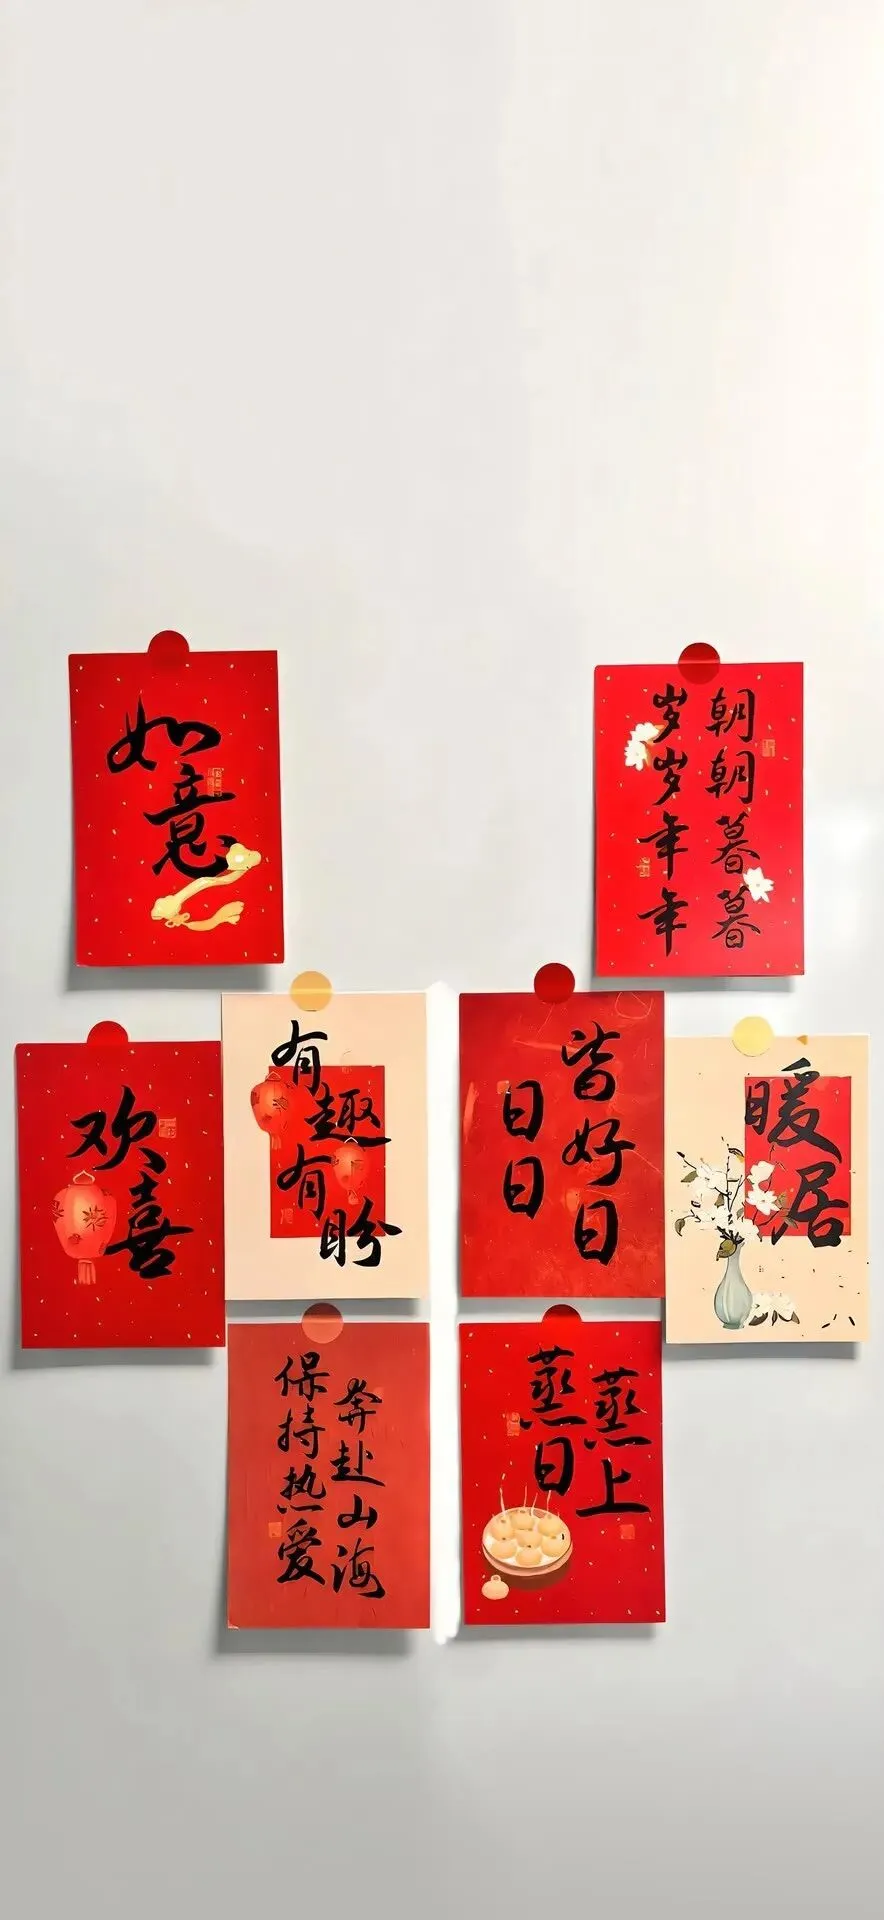 如意
朝朝暮暮
岁岁年年
欢喜
有趣
有盼
日日
皆好日
暖居
保持热爱
奔赴山海
蒸蒸
日上